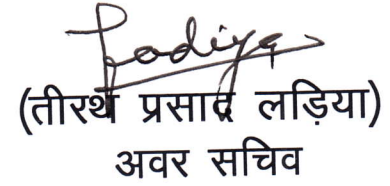 Ladiya
(तीरथ प्रसाद लड़िया)
अवर सचिव